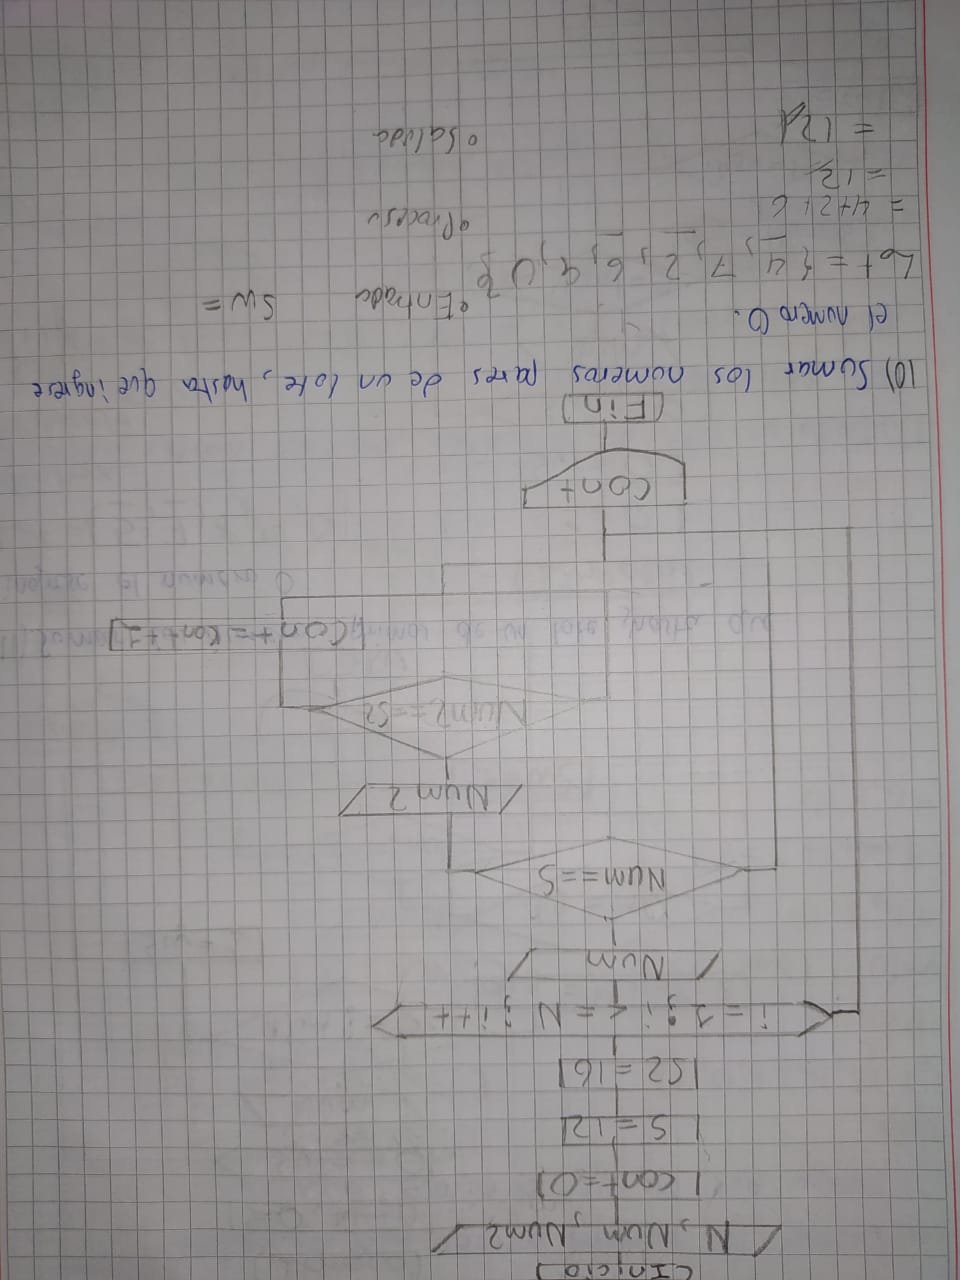 Inicio
N, Num, Num2
cont=0
S=12
S2=16
i=1; i<=N; i++
Num
Num==S
Num2
Num2==S2
Cont=cont+1
cont
Fin
10) Sumar los numeros pares de un lote, hasta que ingrese
el numero 0.
Lot = { 4, 7, 2, 6, 9, 0 }
= 4+2+6
= 12
= 12
•Entrada SW=
•Proceso
•Salida